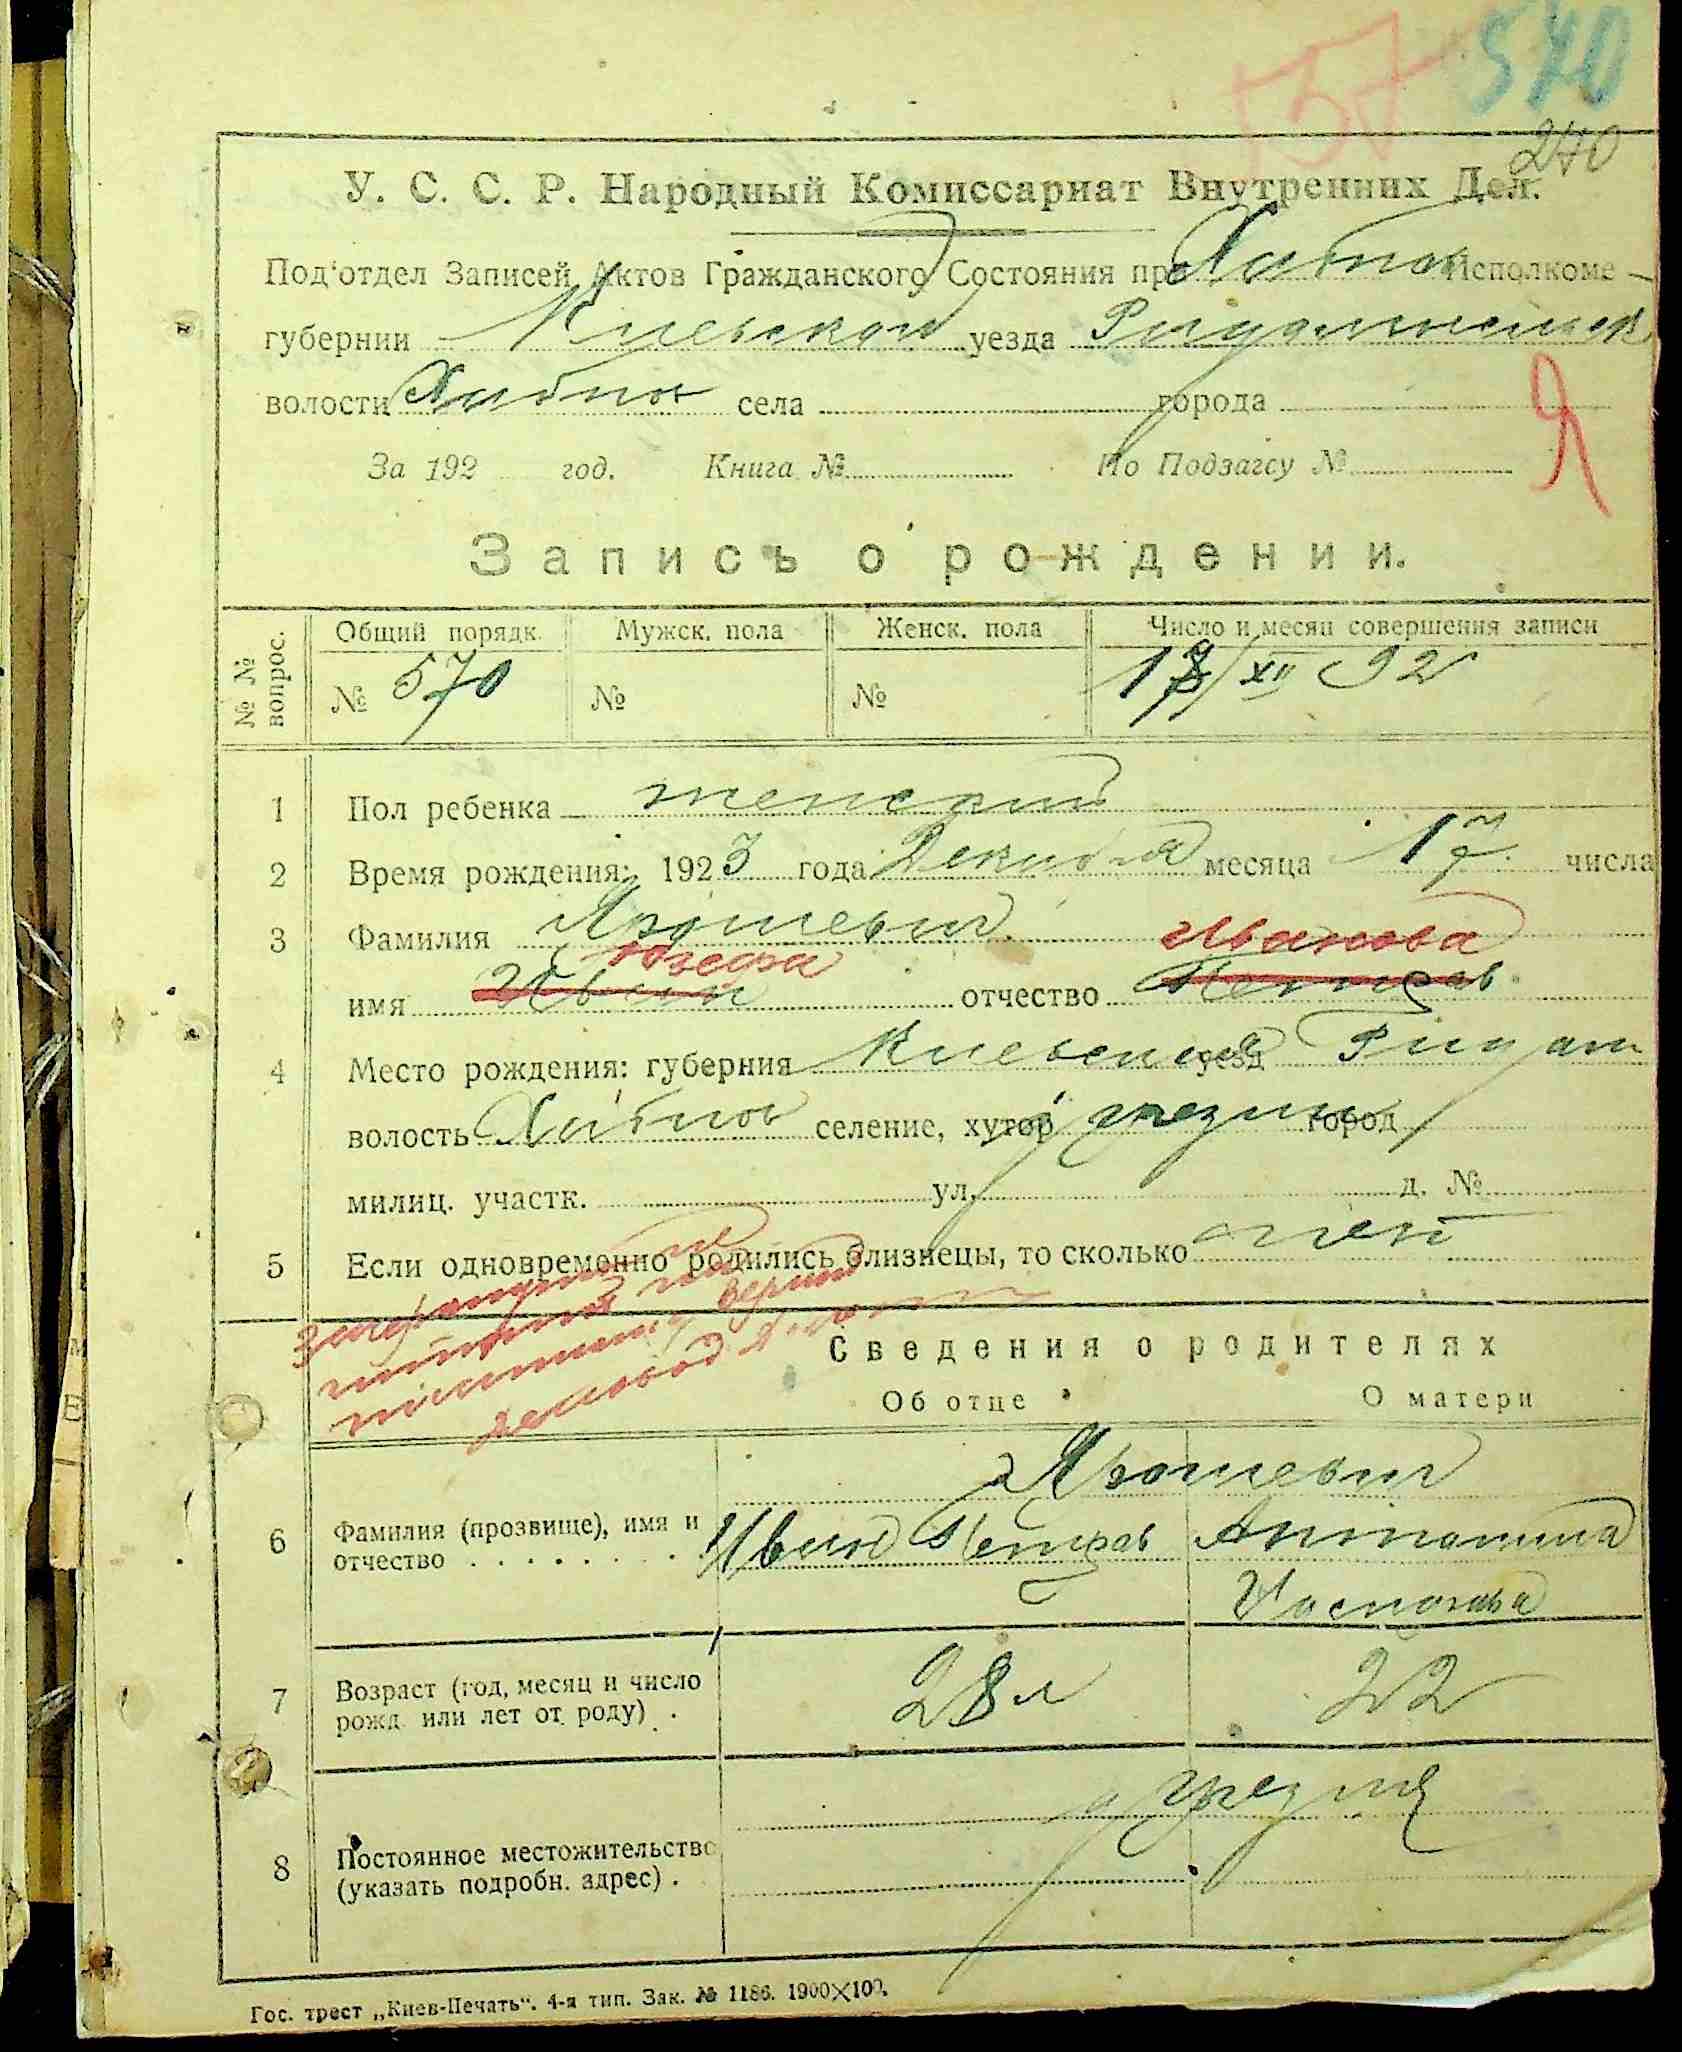 57 540
240
У. С. С. Р. Народный Комиссариат Внутренних Дел.
Под'отдел Записей Актов Гражданского Состояния при Хабнов Исполкоме
губернии Киевской уезда
волости Хабнов села города
За 192 год. Книга № По Подзагсу №
Я
Запись о рождении.
№ № вопрос. Общий порядк. Мужск. пола Женск. пола Число и месяц совершения записи
№ 570 № № XII 92
1 Пол ребенка женский
2 Время рождения: 1923 года Декабря месяца 17 числа
3 Фамилия Ярошевич Иванова
Юзефа
имя Иван отчество Петров
4 Место рождения: губерния Киевская уезд
волость Хабнов селение, хутор город
милиц. участк. ул. д. №
5 Если одновременно родились близнецы, то сколько нет
Сведения о родителях
Об отце О матери
Ярошевич
6 Фамилия (прозвище), имя и Иван Петров Антонина
отчество . . . . . . . .
7 Возраст (год, месяц и число 28 л 22
рожд. или лет от роду) .
8 Постоянное местожительство
(указать подробн. адрес) .
Гос. трест „Киев-Печать“. 4-я тип. Зак. № 1186. 1900×100.